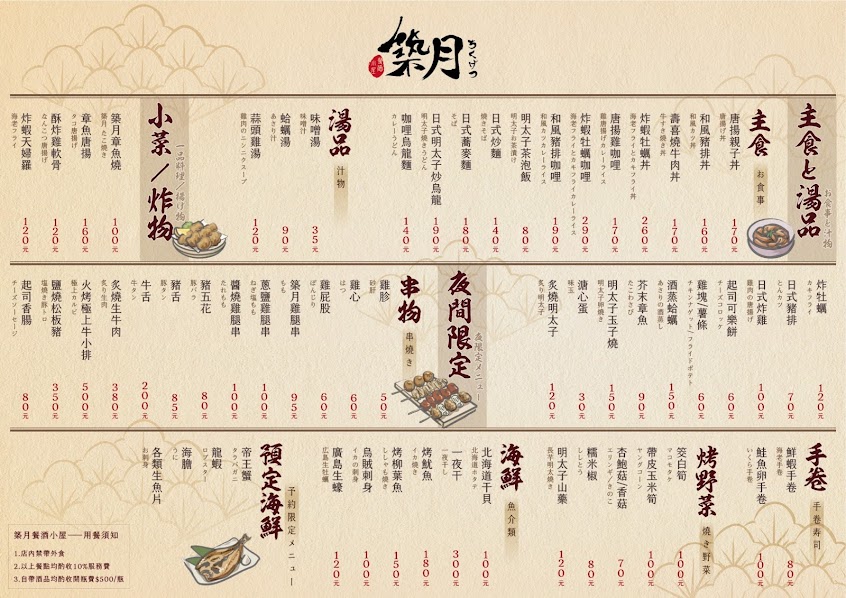 築月
ちくげつ
主食と湯品
お食事と汁物
主食
お食事
唐揚親子丼
唐揚げ丼
170元
和風豬排丼
和風カツ丼
160元
壽喜燒牛肉丼
牛すき焼き丼
170元
炸蝦牡蠣丼
海老フライとカキフライ丼
260元
唐揚雞咖哩
雞唐揚げカレーライス
170元
炸蝦牡蠣咖哩
海老フライとカキフライカレーライス
290元
和風豬排咖哩
和風カツカレーライス
190元
明太子茶泡飯
明太子お茶漬け
80元
日式炒麵
焼きそば
140元
日式蕎麥麵
そば
180元
日式明太子炒烏龍
明太子焼きうどん
190元
咖哩烏龍麵
カレーうどん
140元
湯品
汁物
味噌湯
味噌汁
35元
蛤蠣湯
あさり汁
90元
蒜頭雞湯
雞肉のニンニクスープ
120元
小菜/炸物
一品料理/揚げ物
築月章魚燒
築月 たこ焼き
100元
章魚唐揚
タコ唐揚げ
160元
酥炸雞軟骨
なんこつ唐揚げ
120元
炸蝦天婦羅
海老フライ
120元
炸牡蠣
カキフライ
120元
日式豬排
とんカツ
70元
日式炸雞
雞肉の唐揚げ
100元
起司可樂餅
チーズコロッケ
60元
雞塊/薯條
チキンナゲット/フライドポテト
60元
酒蒸蛤蠣
あさりの酒蒸し
150元
芥末章魚
たこわさび
90元
明太子玉子燒
明太子卵焼き
150元
溏心蛋
味玉
30元
炙燒明太子
炙り明太子
120元
夜間限定
夜限定メニュー
串物
串焼き
雞胗
砂肝
50元
雞心
はつ
60元
雞屁股
ぼんじり
60元
築月雞腿串
もも
95元
蔥鹽雞腿串
ねぎ塩もも
100元
醬燒雞腿串
たれもも
100元
豬五花
豚バラ
80元
豬舌
豚タン
85元
牛舌
牛タン
200元
炙燒生牛肉
炙り生肉
380元
火烤極上牛小排
極上カルビ
500元
鹽燒松板豬
塩焼き豚トロ
350元
起司香腸
チーズソーセージ
80元
手卷
手巻寿司
鮮蝦手卷
海老手巻
80元
鮭魚卵手卷
いくら手巻
100元
烤野菜
焼き野菜
筊白筍
マコモタケ
100元
帶皮玉米筍
ヤングコーン
100元
杏鮑菇/香菇
エリンギ/きのこ
70元
糯米椒
ししとう
80元
明太子山藥
長芋明太子焼き
120元
海鮮
魚介類
北海道干貝
北海道ホタテ
100元
一夜干
一夜干し
300元
烤魷魚
イカ焼き
180元
烤柳葉魚
ししゃも焼き
150元
烏賊刺身
イカの刺身
100元
廣島生蠔
広島生牡蠣
120元
預定海鮮
予約限定メニュー
帝王蟹
タラバガニ
龍蝦
ロブスター
海膽
うに
各類生魚片
お刺身
築月餐酒小屋——用餐須知
1.店內禁帶外食
2.以上餐點均酌收10%服務費
3.自帶酒品均酌收開瓶費$500/瓶